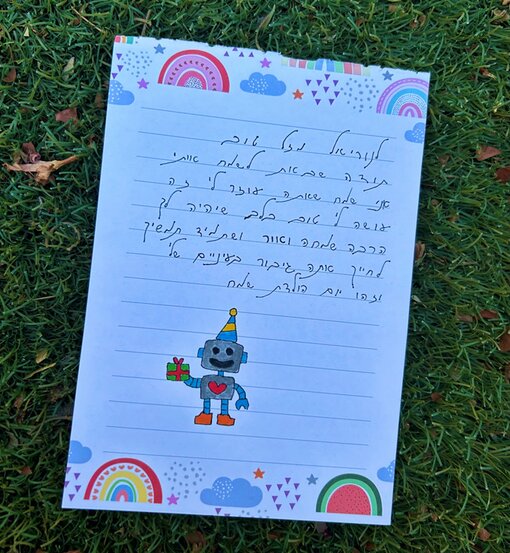 לנוריאל מזל טוב
תודה שבאת לשמח אותי
אני שמח שאתה עוזר לי זה
עושה לי טוב בלב שיהיה לך
הרבה שמחה ואוור ושתמיד תמשיך
לחייך אתה גיבור בעיניים שלי
וזהו יום הולדת שמח